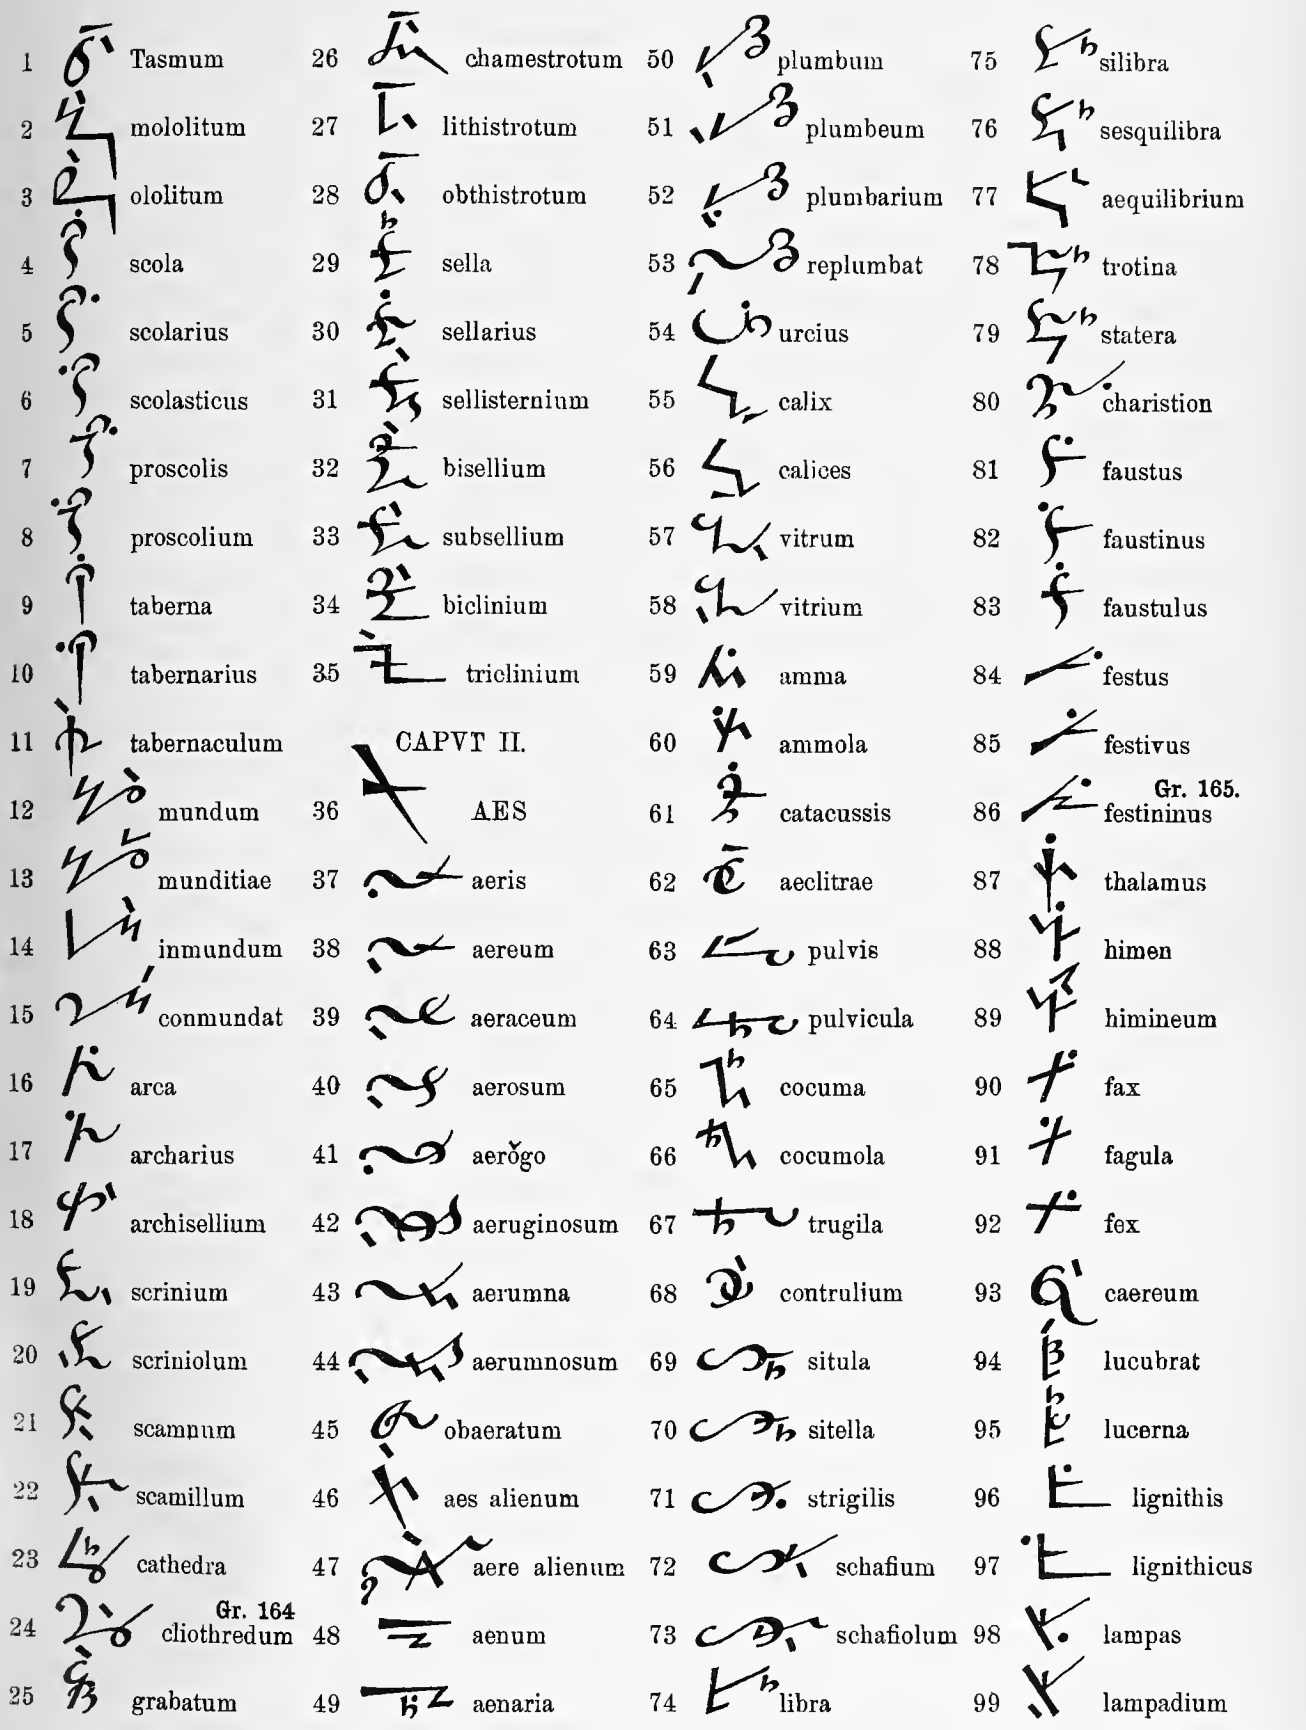 1 Tasmum
2 mololitum
3 ololitum
4 scola
5 scolarius
6 scolasticus
7 proscolis
8 proscolium
9 taberna
10 tabernarius
11 tabernaculum
12 mundum
13 munditiae
14 inmundum
15 conmundat
16 arca
17 archarius
18 archisellium
19 scrinium
20 scriniolum
21 scamnum
22 scamillum
23 cathedra
Gr. 164
24 cliothredum
25 grabatum
26 chamestrotum
27 lithistrotum
28 obthistrotum
29 sella
30 sellarius
31 sellisternium
32 bisellium
33 subsellium
34 biclinium
35 triclinium
CAPVT II.
36 AES
37 aeris
38 aereum
39 aeraceum
40 aerosum
41 aerŏgo
42 aeruginosum
43 aerumna
44 aerumnosum
45 obaeratum
46 aes alienum
47 aere alienum
48 aenum
49 aenaria
50 plumbum
51 plumbeum
52 plumbarium
53 replumbat
54 urcius
55 calix
56 calices
57 vitrum
58 vitrium
59 amma
60 ammola
61 catacussis
62 aeclitrae
63 pulvis
64 pulvicula
65 cocuma
66 cocumola
67 trugila
68 contrulium
69 situla
70 sitella
71 strigilis
72 schafium
73 schafiolum
74 libra
75 silibra
76 sesquilibra
77 aequilibrium
78 trotina
79 statera
80 charistion
81 faustus
82 faustinus
83 faustulus
84 festus
85 festivus
Gr. 165.
86 festininus
87 thalamus
88 himen
89 himineum
90 fax
91 fagula
92 fex
93 caereum
94 lucubrat
95 lucerna
96 lignithis
97 lignithicus
98 lampas
99 lampadium